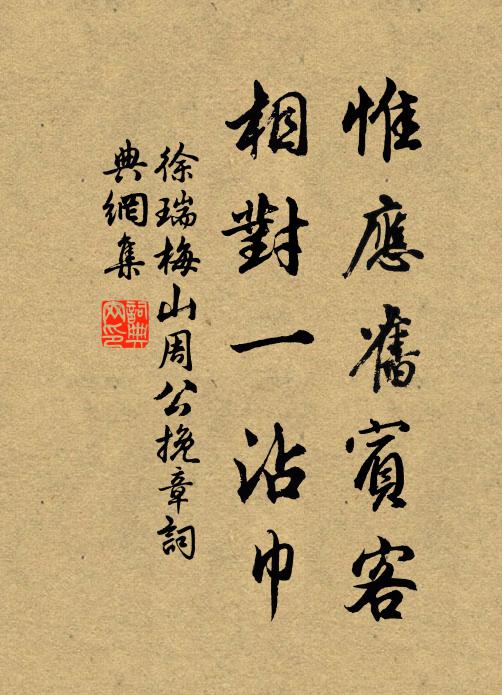 惟應舊賓客
相對一沾巾
徐瑞梅山周公挽章詞
典網集
詞典網印